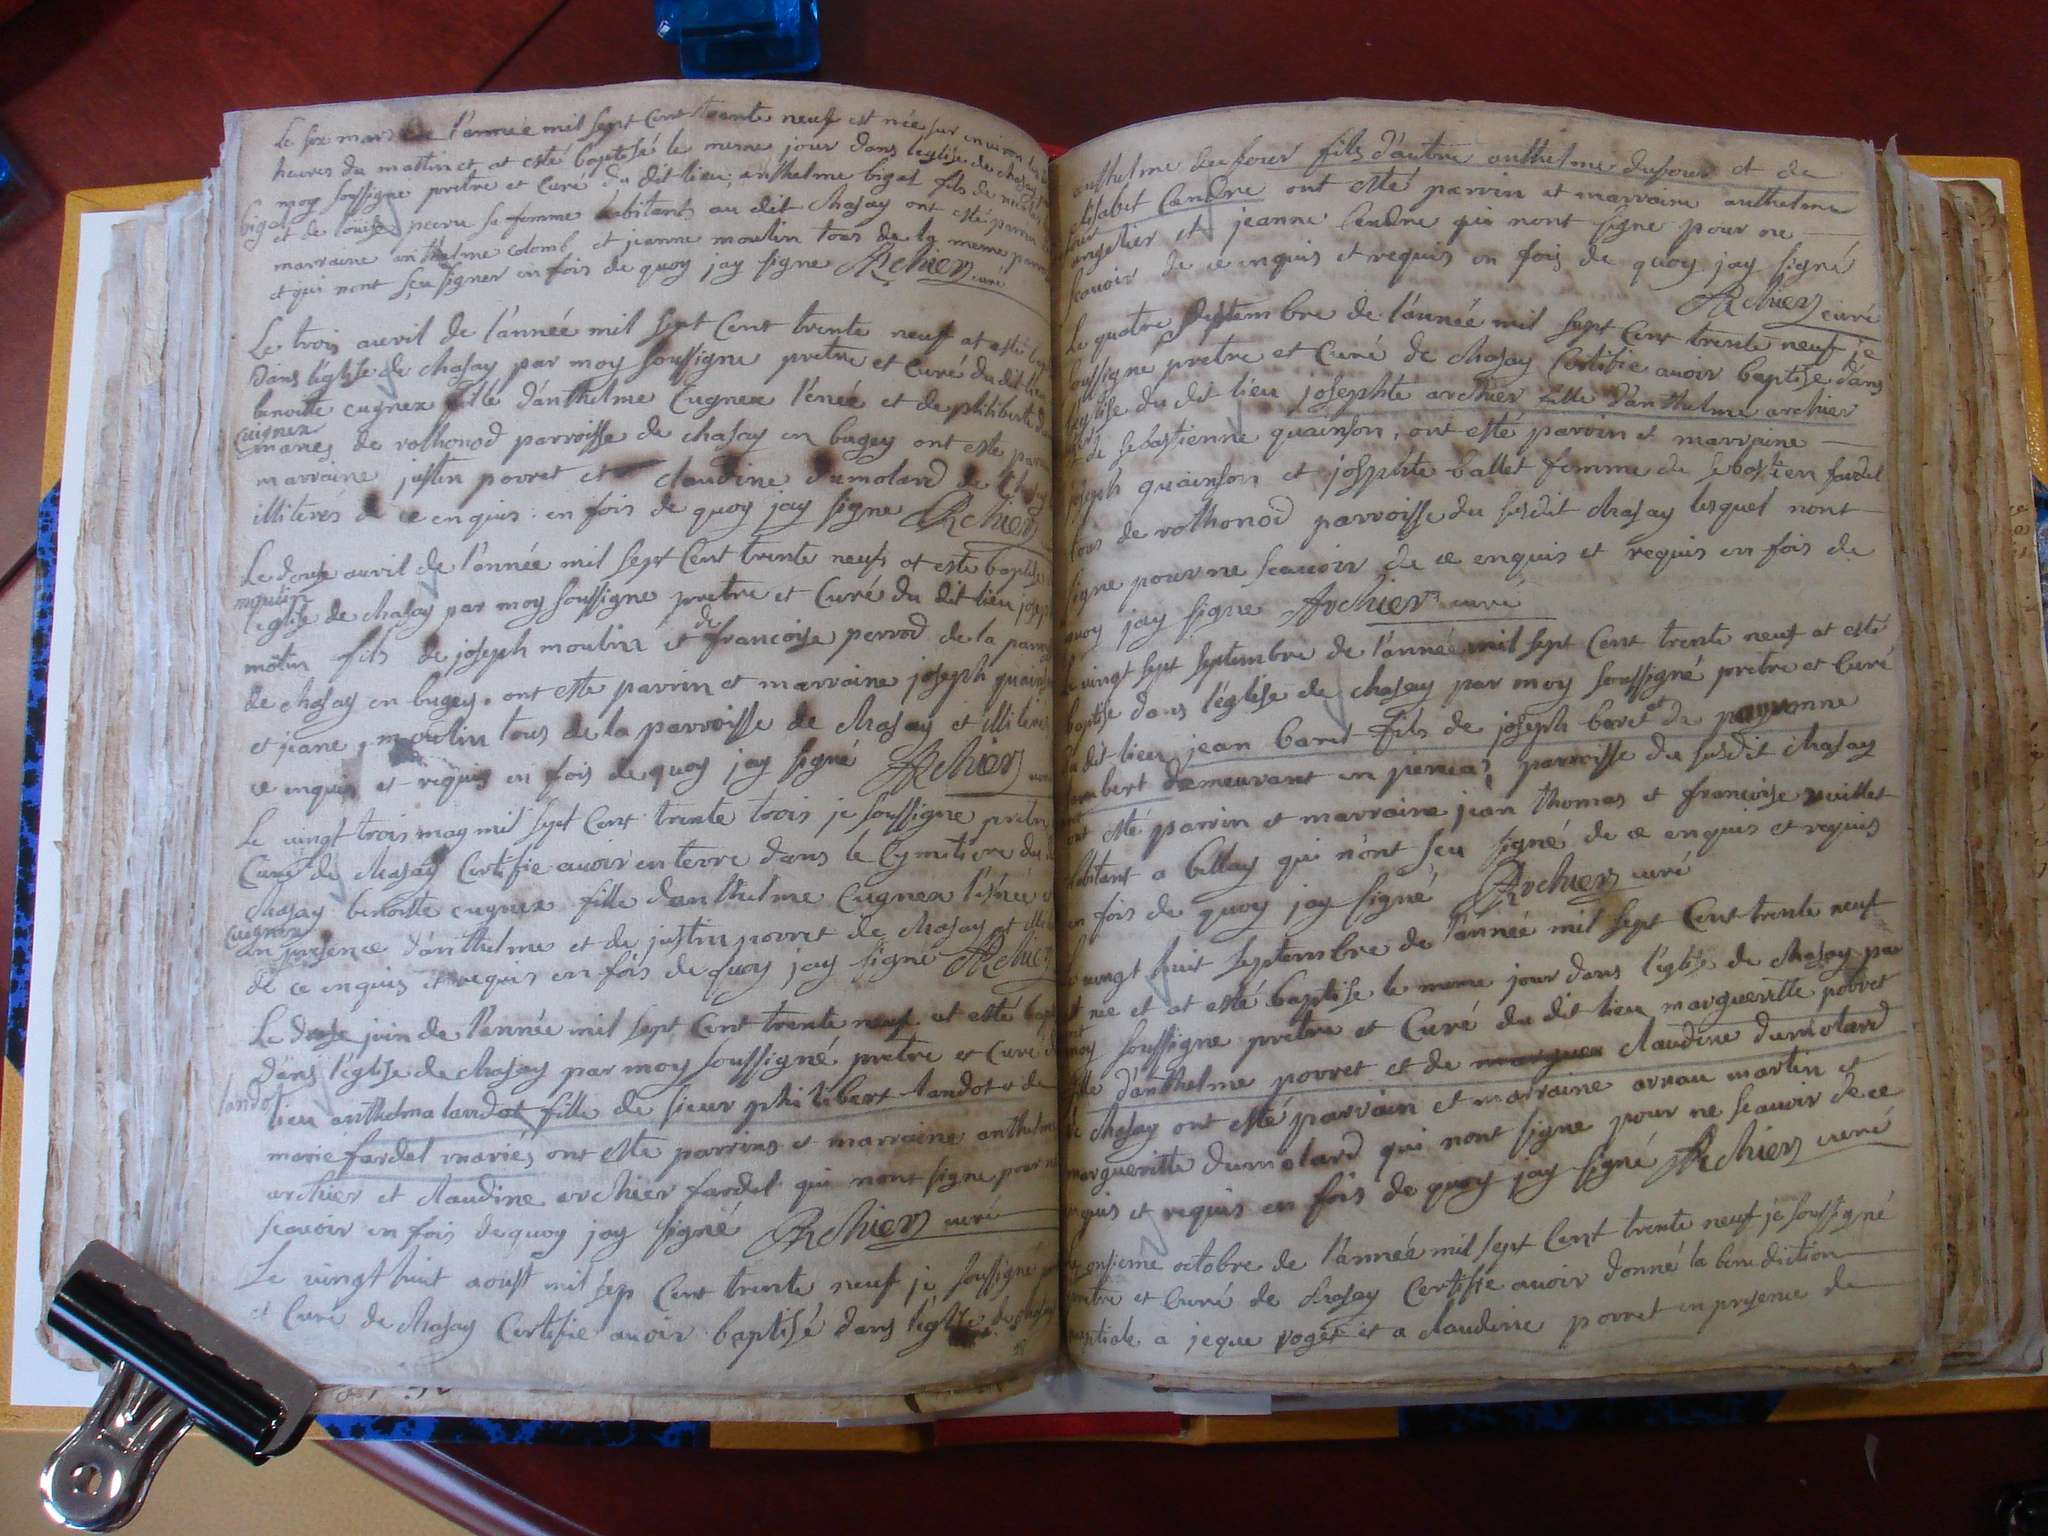 Le six mars de l'année mil sept Cent trente neuf est née sur environ les
heures du mattin et at esté baptisé le meme jour dans leglise de chasay
moy soussigne pretre et Curé du dit lieu, anthelme bigat fils de nicolas
bigat
et de louise perru sa femme habitants au dit Chasay ont esté parrin
marraine anthelme colomb et jeanne moulin tous de la meme parroi
et qui nont sçeu signer en fois de quoy jay signe Archier curé
Le trois avril de l'année mil sept Cent trente neuf at esté bap
Dans leglise de chasay par moy soussigne pretre et Curé du dit lieu
benoitte cugnex fille d'anthelme Cugnex l'énée et de philiberte
cuignex
mariés de rothonod parroisse de chasay en bugey ont esté parrin
marraine justin porret et claudine dumolard de Chasay
illiterés de ce enquis en fois de quoy jay signe Archier
Le douse avril de l'année mil sept Cent trente neufs at esté baptise
moulin
l'eglise de chasay par moy soussigne pretre et Curé du dit lieu joseph
molin fils de joseph moulin et de francoise perrod de la parroi
de chasay en bugey, ont esté parrin et marraine joseph quainson
et jeane moulin tous de la parroisse de chasay et illiterés
ce enquis et requis en fois de quoy jay signé Archier curé
Le vingt trois may mil sept Cent trente trois je soussigne pretre
Curé de chasay Certifie avoir enterre dans le Cymitiere du
chasay benoitte cugnex fille danthelme Cugnex l'énée et
Cuignex
en presence d'anthelme et de justin porret de chasay et
de ce enquis et requis en fois de quoy jay signe Archier
Le douse juin de l'année mil sept Cent trente neuf at esté bapt
dans l'église de chasay par moy soussigné pretre et Curé du
landot
lieu anthelma landot fille de sieur philibert landot et de
marie fardel mariés ont esté parrins et marraine anthelme
archier et claudine archier fardel qui nont signe pour ne
scavoir en fois de quoy jay signé Archier curé
Le vingt huit aoust mil sep Cent trente neuf je soussigné pretre
et Curé de chasay Certifie avoir baptisé dans l'église de chasay
anthelme dufour fils d'autre anthelme dufour et de
elisabet Cendre ont esté parrin et marraine anthelme
four
angelier et jeanne Cendre qui nont signe pour ne
scavoir de ce enquis et requis en fois de quoy jay signé
Archier curé
Le quatre septembre de l'année mil sept Cent trente neuf je
soussigne pretre et Curé de chasay Certifie avoir baptise dans
leglise du dit lieu josephte archier fille d'anthelme archier
et de sebastienne quainson, ont esté parrin et marraine
joseph quainson et josephte ballet femme de sebastien fardel
tous de rothonod parroisse du susdit chasay lesquel nont
signe pour ne scavoir de ce enquis et requis en fois de
quoy jay signé Archier curé
Le vingt sept septembre de l'année mil sept Cent trente neuf at esté
baptise dans l'église de chasay par moy soussigné pretre et Curé
du dit lieu jean baret fils de joseph baret et de
humbert demeurant en parroisse du susdit chasay
ont esté parrin et marraine jean thomas et francoise vuillet
habitant a bellay qui n'ont sceu signé de ce enquis et requis
en fois de quoy jay signé Archier curé
Le vingt huit septembre de l'année mil sept Cent trente neuf
est née et at esté baptise le meme jour dans l'église de chasay par
moy soussigne pretre et Curé du dit lieu margueritte porret
fille d'anthelme porret et de claudine dumolard
de chasay ont esté parrain et marraine arnau martin et
margueritte dumolard qui nont signe pour ne scavoir de ce
enquis et requis en fois de quoy jay signé Archier curé
Le onsieme octobre de l'année mil sept Cent trente neuf je soussigné
pretre et Curé de chasay Certifie avoir donné la benediction
nuptiale a jeque roget et a claudine porret en presence de